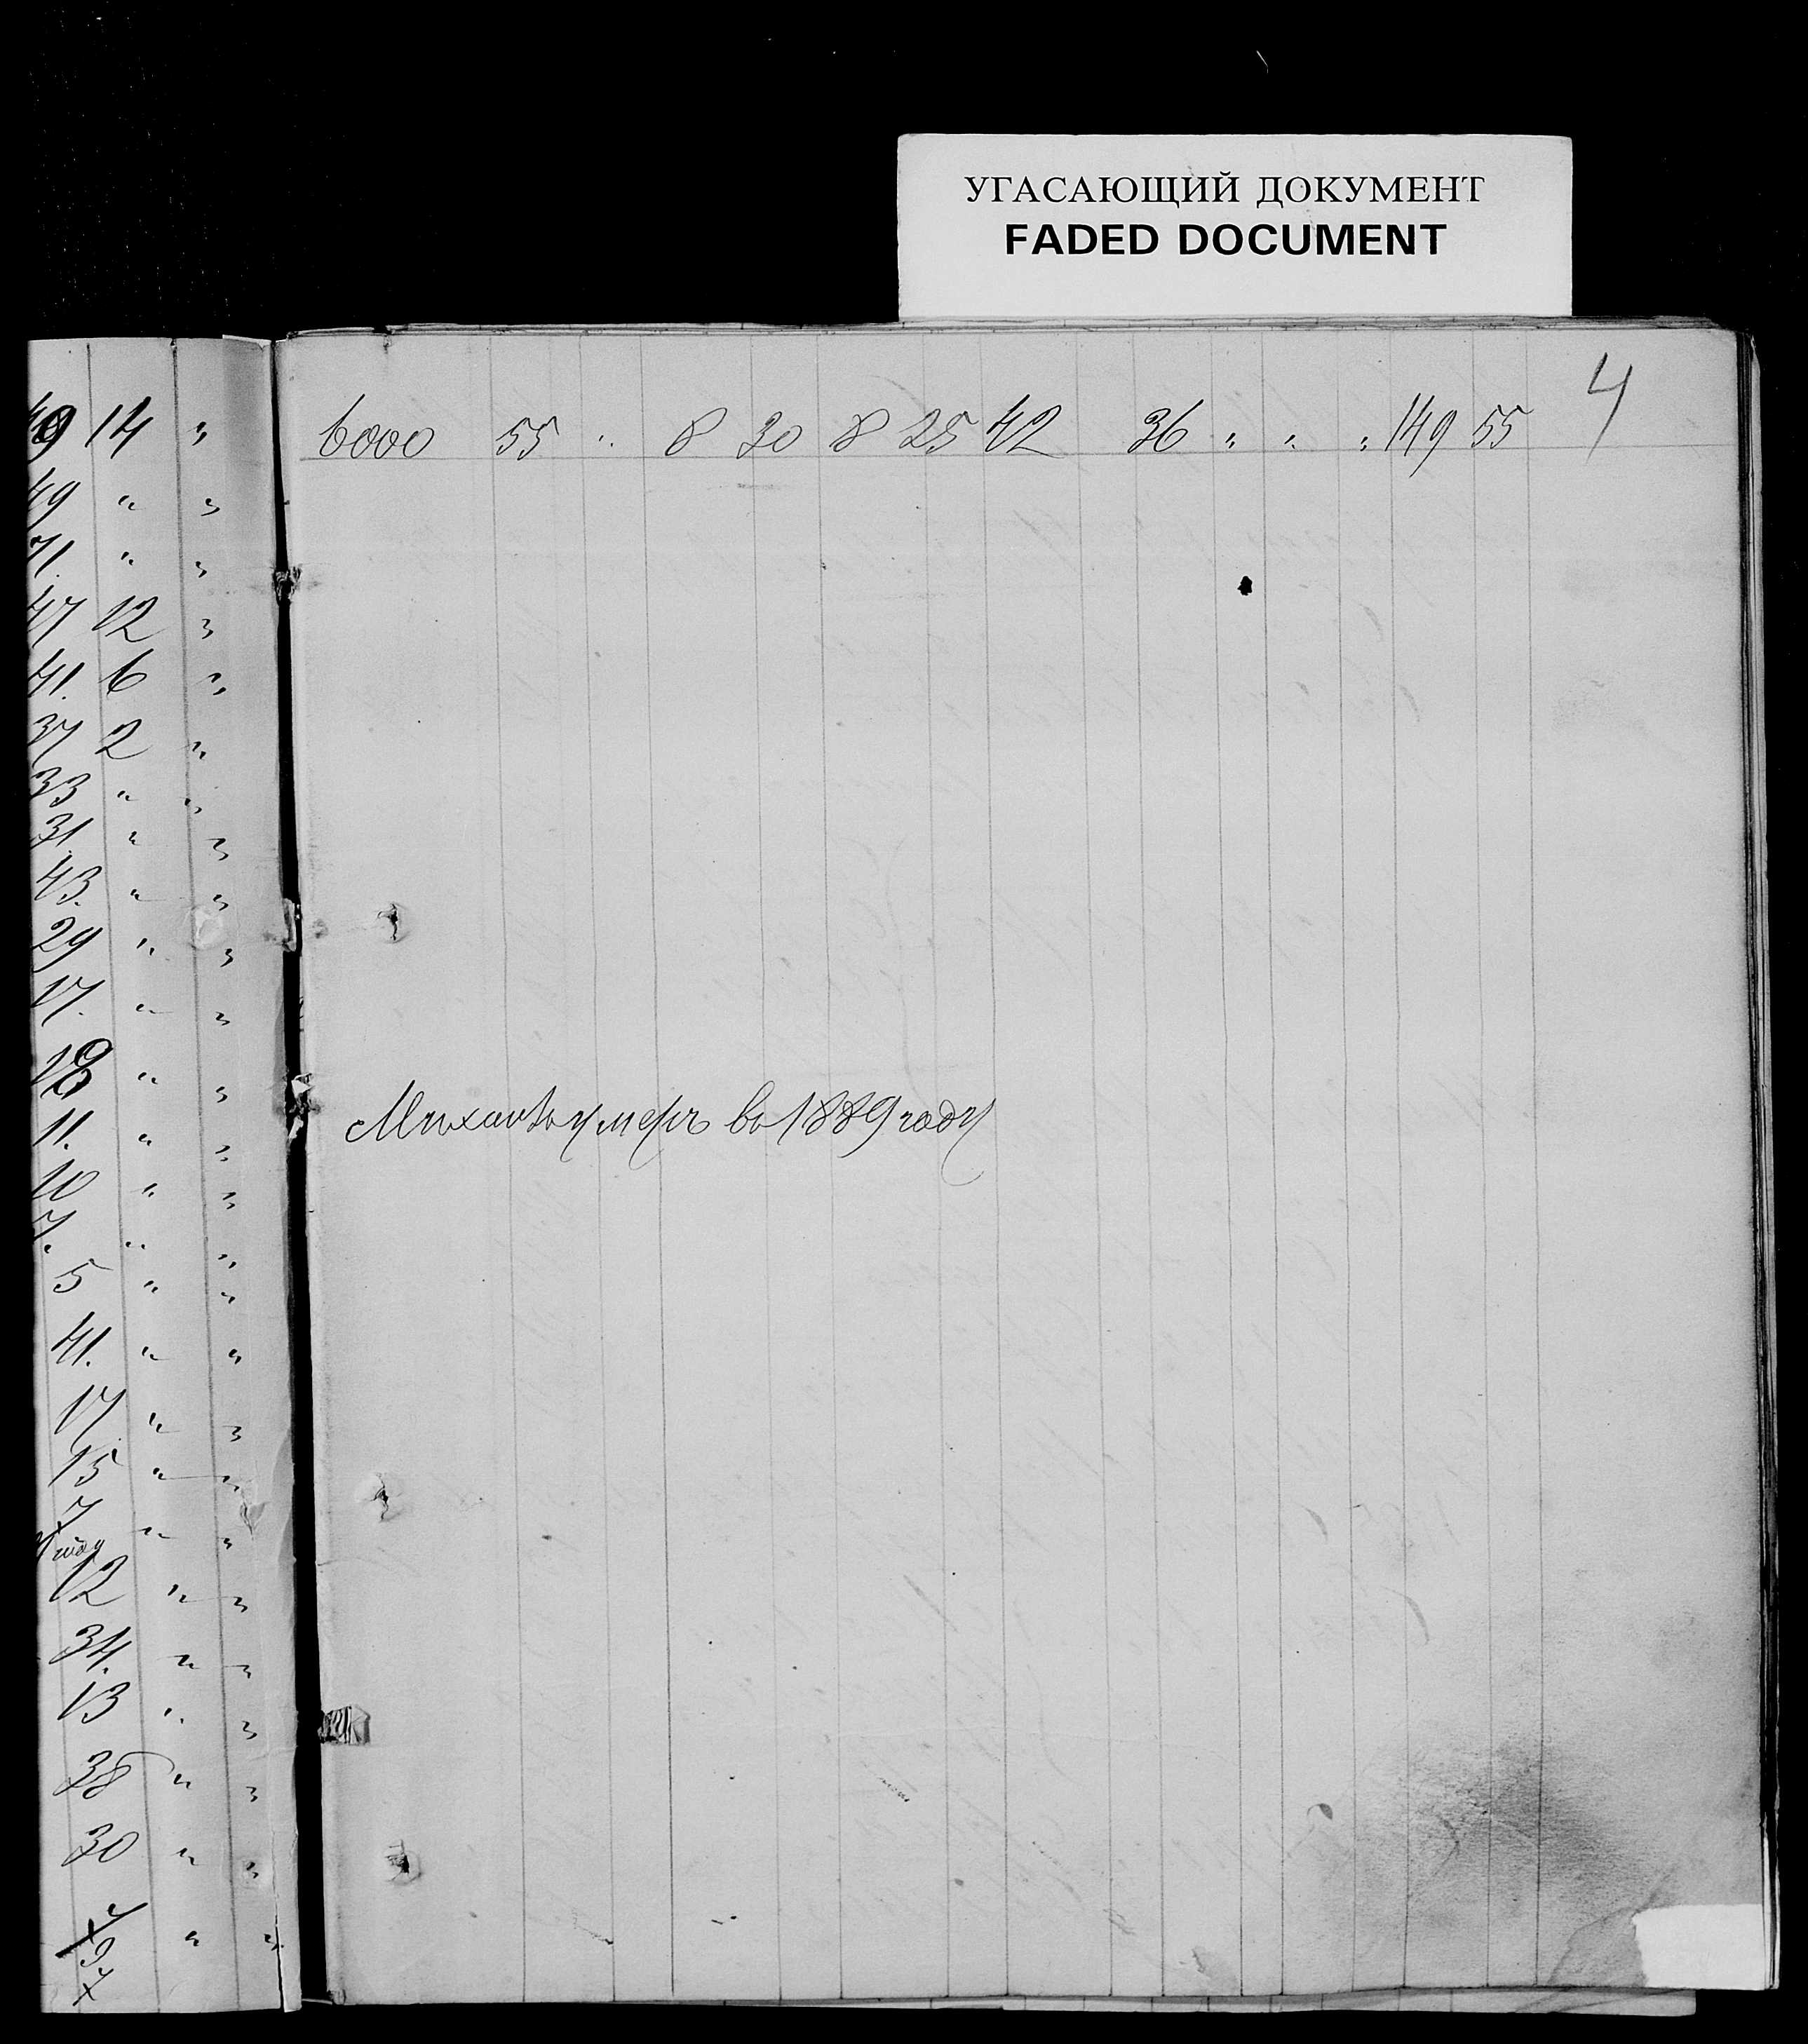 УГАСАЮЩИЙ ДОКУМЕНТ
FADED DOCUMENT
4
14 "
6000 55 " 8 30 8 25 42 36 " " " 149 55
49 " "
71. " "
47 12 "
41. 6 "
37 2 "
33 " "
31. " "
43. " "
29 " "
17. " "
" "
11. " "
Михаилъ умеръ въ 1889 году
10 " "
7. " "
5 " "
41. " "
17 " "
15 " "
7 " "
12 " "
34. " "
13 " "
38 " "
30 " "
" "